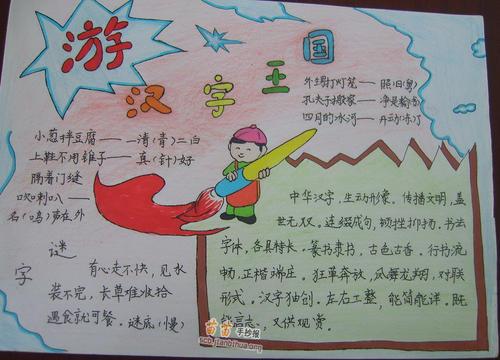 游
汉字王国
外甥打灯笼——照旧(舅)
孔夫子搬家——净是输(书)
四月的冰河——开动(冻)了
小葱拌豆腐——一清(青)二白
上鞋不用锥子——真(针)好
隔着门缝
吹喇叭——
名(鸣)声在外
字谜
有心走不快,见水
装不完,长草难收拾
遇食就可餐。谜底(慢)
中华汉字,生动形象。传播文明,盖
世无双。连缀成句,顿挫抑扬。书法
字体,各具特长。篆书隶书,古色古香。行书流
畅,正楷端庄。狂草奔放,凤舞龙翔,对联
形式。汉字独创。左右工整,能简能详。既
能言志,又供观赏。
苗苗手抄报
sc0.jianbihua.org